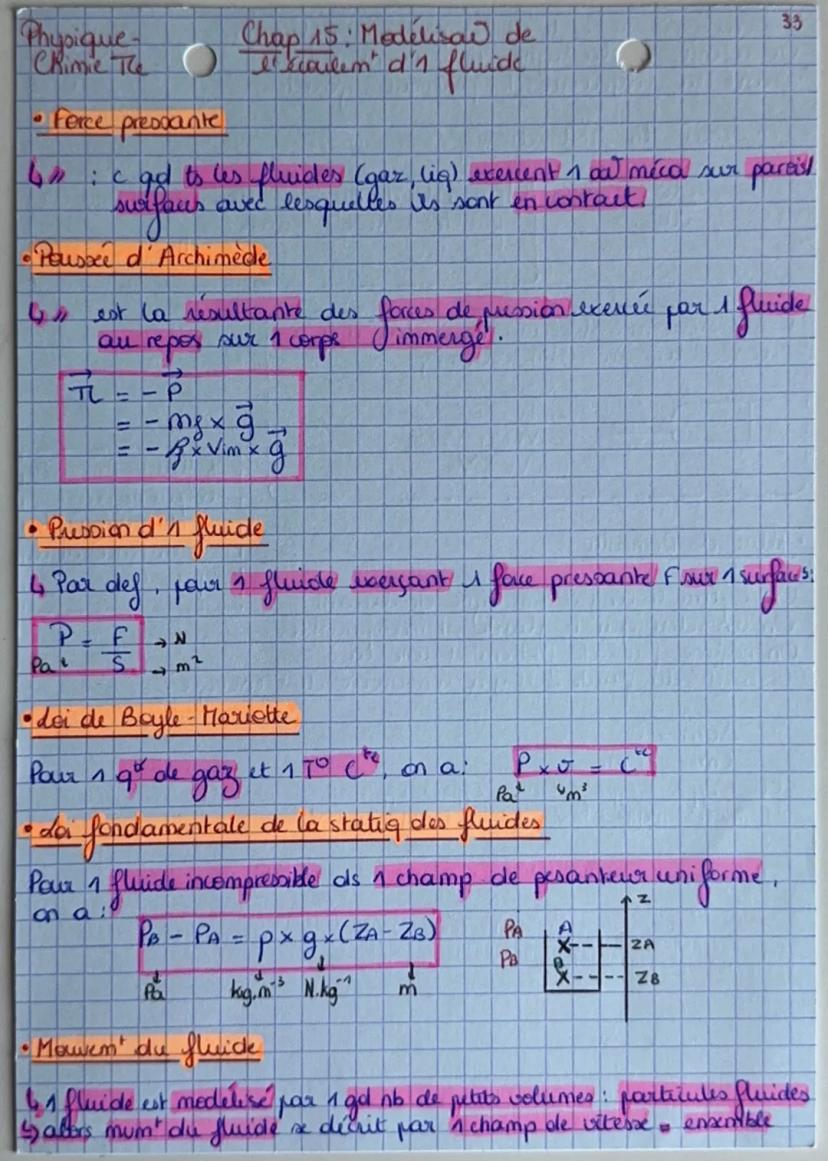 33
Physique-Chimie Tle
Chap 15 : Modélisa° de
l'écoulemt d'1 fluide
• Force pressante
↳ " : c qd ts les fluides (gaz, liq) exercent 1 a° méca sur parois/
surfaces avec lesquelles ils sont en contact.
• Poussée d'Archimède
↳ " est la résultante des forces de pression exercée par 1 fluide
au repos sur 1 corps immergé.
π⃗ = - P⃗
= - mf × g⃗
= - ρf × Vim × g⃗
• Pression d'1 fluide
↳ Par def, pour 1 fluide exerçant 1 force pressante F sur 1 surface S :
P = F/S → N
Pa → m²
• Loi de Boyle-Mariotte
Pour 1 qté de gaz et 1 T° Cte, on a : P × V = Cte
Pa m³
• Loi fondamentale de la statiq des fluides
Pour 1 fluide incompressible ds 1 champ de pesanteur uniforme,
on a :
PB - PA = ρ × g × (ZA - ZB)
Pa kg.m⁻³ N.kg⁻¹ m
Z
PA A ZA
PB B ZB
• Mouvemt du fluide
↳ 1 fluide est modélisé par 1 gd nb de petits volumes : particules fluides
↳ alors mvmt du fluide se décrit par 1 champ de vitesse = ensemble